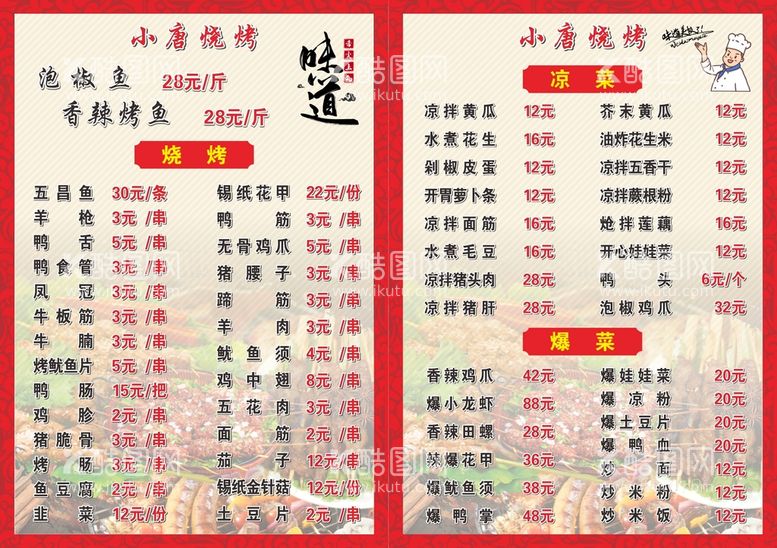 小唐烧烤
味道
泡椒鱼 28元/斤
香辣烤鱼 28元/斤
烧烤
五昌鱼 30元/条
羊枪 3元/串
鸭舌 5元/串
鸭食管 3元/串
凤冠 3元/串
牛板筋 3元/串
牛腩 3元/串
烤鱿鱼片 5元/串
鸭肠 15元/把
鸡胗 2元/串
猪脆骨 3元/串
烤肠 3元/串
鱼豆腐 2元/串
韭菜 12元/份
锡纸花甲 22元/份
鸭筋 3元/串
无骨鸡爪 5元/串
猪腰子 3元/串
蹄筋 3元/串
羊肉 3元/串
鱿鱼须 4元/串
鸡中翅 8元/串
五花肉 3元/串
面筋 2元/串
茄子 12元/份
锡纸金针菇 12元/份
土豆片 2元/串
小唐烧烤
凉菜
凉拌黄瓜 12元
水煮花生 16元
剁椒皮蛋 12元
开胃萝卜条 12元
凉拌面筋 16元
水煮毛豆 16元
凉拌猪头肉 28元
凉拌猪肝 28元
芥末黄瓜 12元
油炸花生米 12元
凉拌五香干 12元
凉拌蕨根粉 12元
炝拌莲藕 16元
开心娃娃菜 12元
鸭头 6元/个
泡椒鸡爪 32元
爆菜
香辣鸡爪 42元
爆小龙虾 88元
香辣田螺 28元
辣爆花甲 36元
爆鱿鱼须 38元
爆鸭掌 48元
爆娃娃菜 20元
爆凉粉 20元
爆土豆片 20元
爆鸭血 20元
炒面 12元
炒米粉 12元
炒米饭 12元